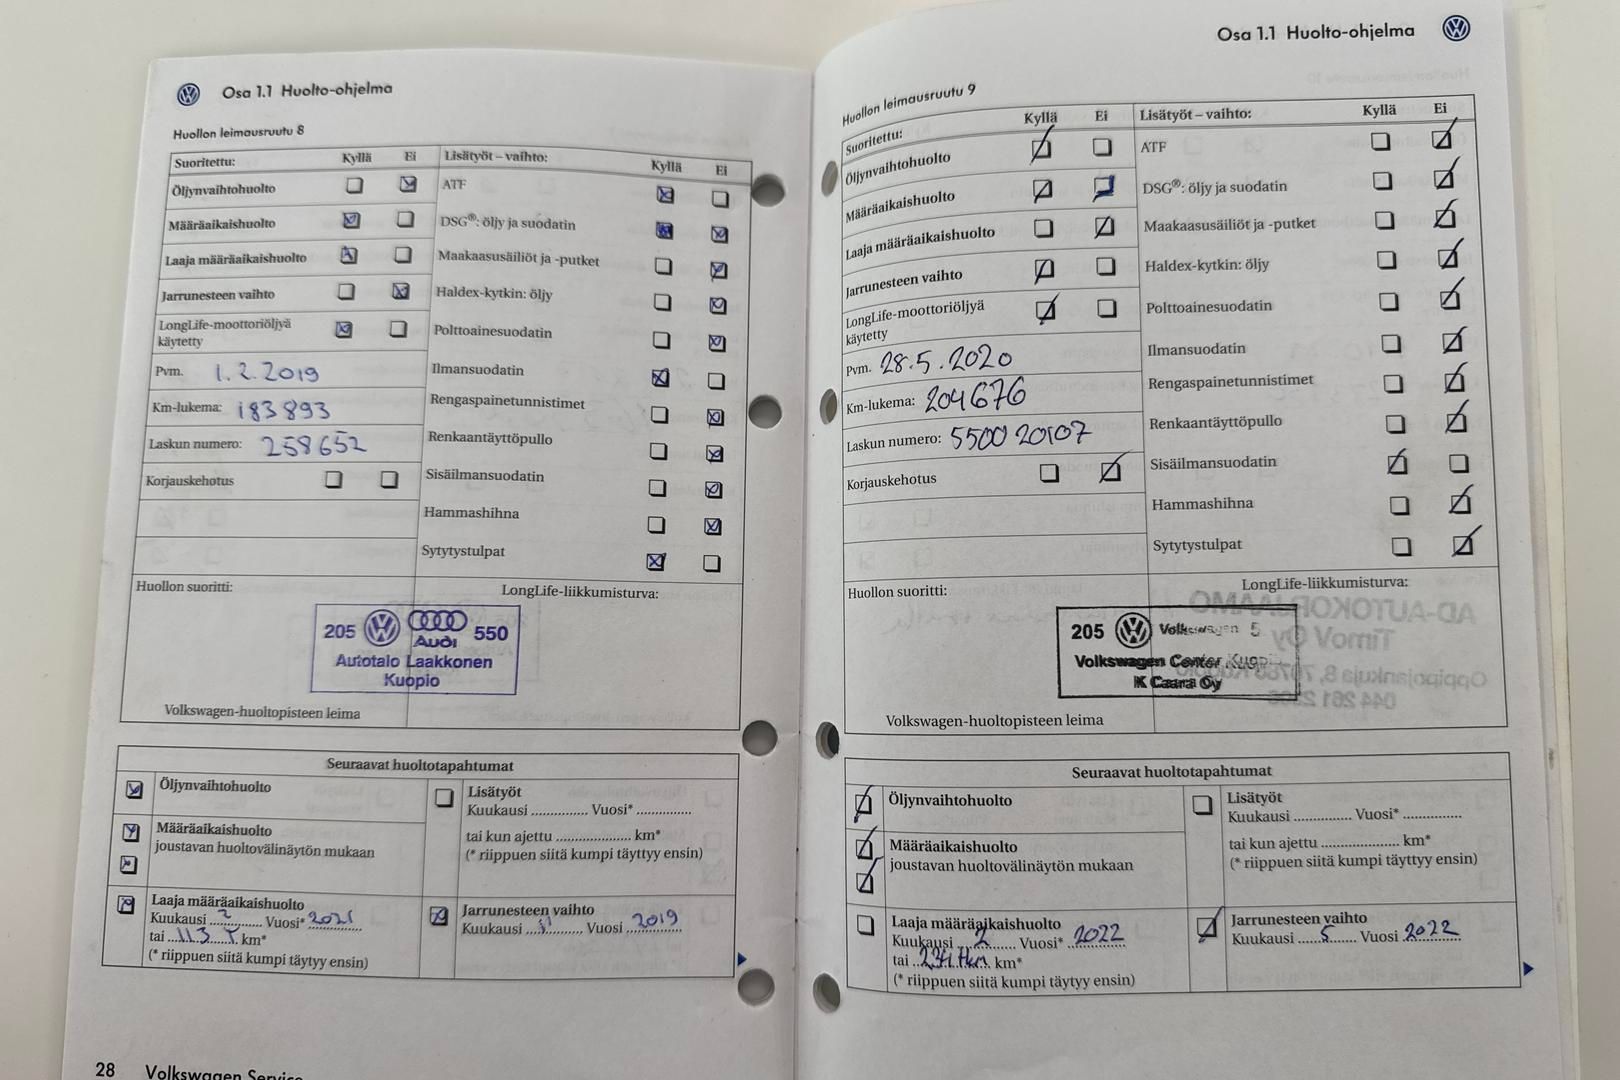 Osa 1.1 Huolto-ohjelma
Huollon leimausruutu 8
Suoritettu: Kyllä Ei
Öljynvaihtohuolto
Määräaikaishuolto
Laaja määräaikaishuolto
Jarrunesteen vaihto
LongLife-moottoriöljyä
käytetty
Pvm. 1.2.2019
Km-lukema: 183 893
Laskun numero: 258652
Korjauskehotus
Lisätyöt – vaihto: Kyllä Ei
ATF
DSG®: öljy ja suodatin
Maakaasusäiliöt ja -putket
Haldex-kytkin: öljy
Polttoainesuodatin
Ilmansuodatin
Rengaspainetunnistimet
Renkaantäyttöpullo
Sisäilmansuodatin
Hammashihna
Sytytystulpat
Huollon suoritti:
LongLife-liikkumisturva:
205 Audi 550
Autotalo Laakkonen
Kuopio
Volkswagen-huoltopisteen leima
Seuraavat huoltotapahtumat
Öljynvaihtohuolto
Määräaikaishuolto
joustavan huoltovälinäytön mukaan
Laaja määräaikaishuolto
Kuukausi 2 Vuosi* 2021
tai 113 km*
(* riippuen siitä kumpi täytyy ensin)
Lisätyöt
Kuukausi ............... Vuosi* ..............
tai kun ajettu .................... km*
(* riippuen siitä kumpi täyttyy ensin)
Jarrunesteen vaihto
Kuukausi 11 Vuosi 2019
28 Volkswagen Service
Osa 1.1 Huolto-ohjelma
Huollon leimausruutu 9
Suoritettu: Kyllä Ei
Öljynvaihtohuolto
Määräaikaishuolto
Laaja määräaikaishuolto
Jarrunesteen vaihto
LongLife-moottoriöljyä
käytetty
Pvm. 28.5.2020
Km-lukema: 204676
Laskun numero: 5500 20107
Korjauskehotus
Lisätyöt – vaihto: Kyllä Ei
ATF
DSG®: öljy ja suodatin
Maakaasusäiliöt ja -putket
Haldex-kytkin: öljy
Polttoainesuodatin
Ilmansuodatin
Rengaspainetunnistimet
Renkaantäyttöpullo
Sisäilmansuodatin
Hammashihna
Sytytystulpat
Huollon suoritti:
LongLife-liikkumisturva:
205 Volkswagen 5
Volkswagen Center Kuopio
K Caara Oy
Volkswagen-huoltopisteen leima
Seuraavat huoltotapahtumat
Öljynvaihtohuolto
Määräaikaishuolto
joustavan huoltovälinäytön mukaan
Laaja määräaikaishuolto
Kuukausi 2 Vuosi* 2022
tai km*
(* riippuen siitä kumpi täytyy ensin)
Lisätyöt
Kuukausi ............... Vuosi* ...............
tai kun ajettu .................... km*
(* riippuen siitä kumpi täyttyy ensin)
Jarrunesteen vaihto
Kuukausi 5 Vuosi 2022